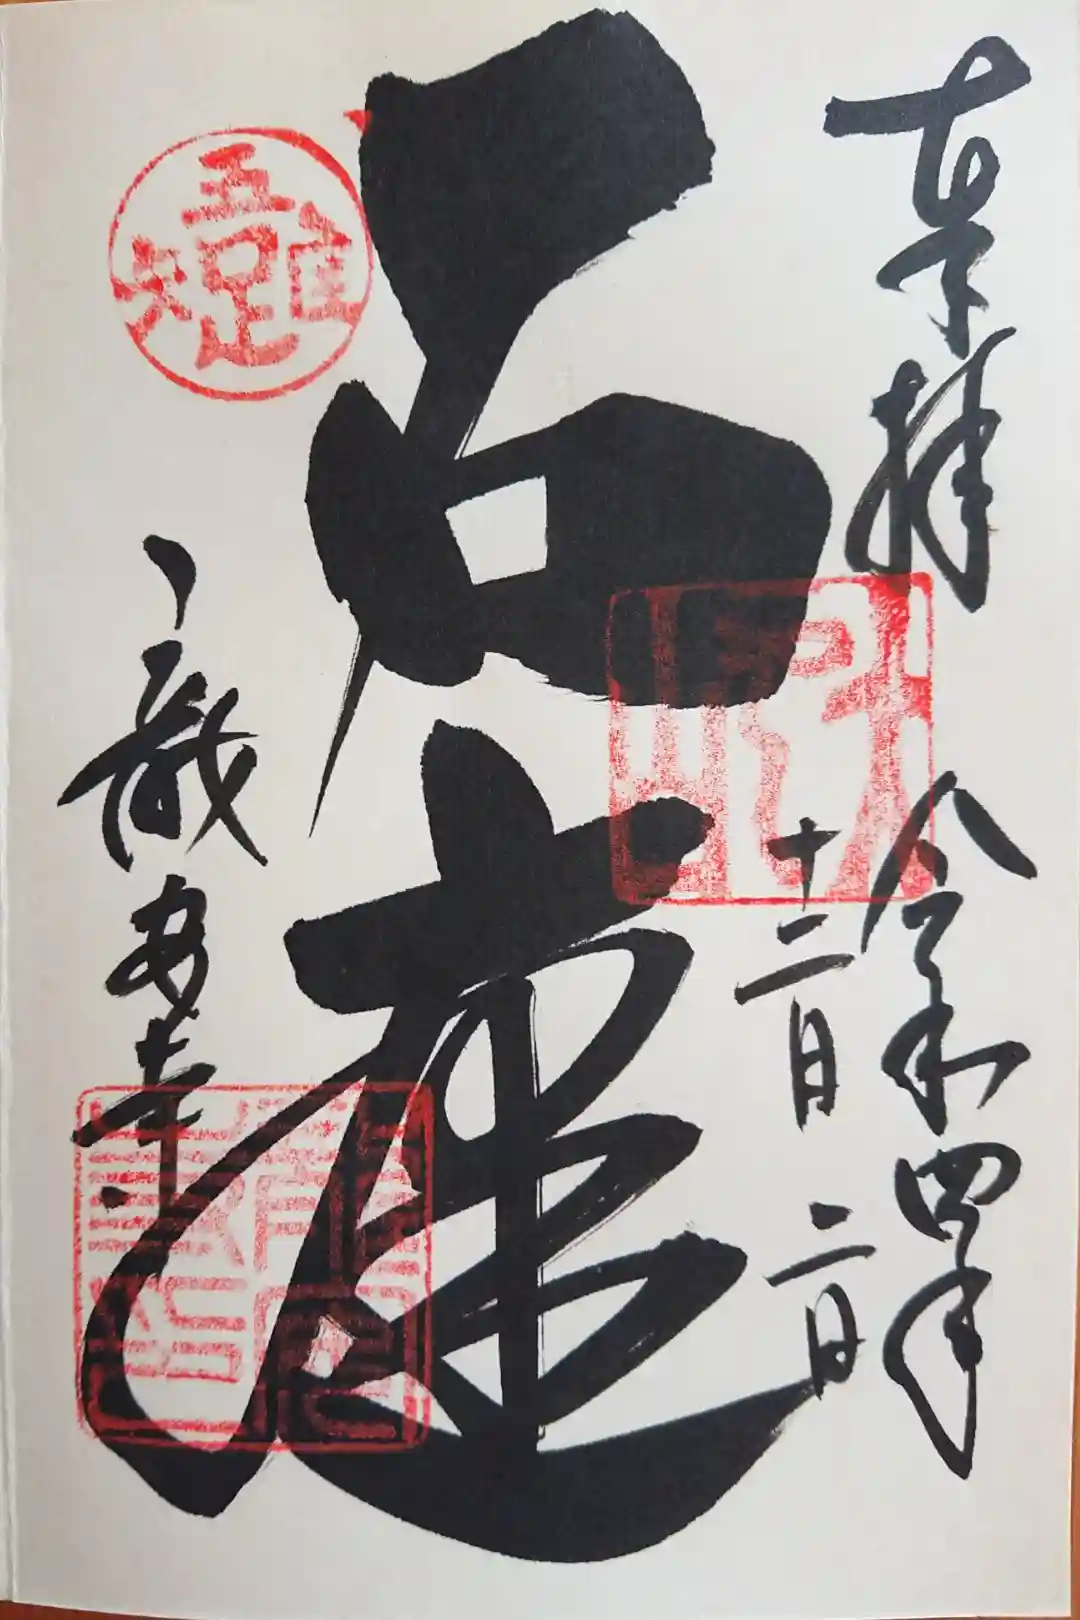 奉拝
令和四年
十二月二日
石庭
龍安寺
吾唯足知